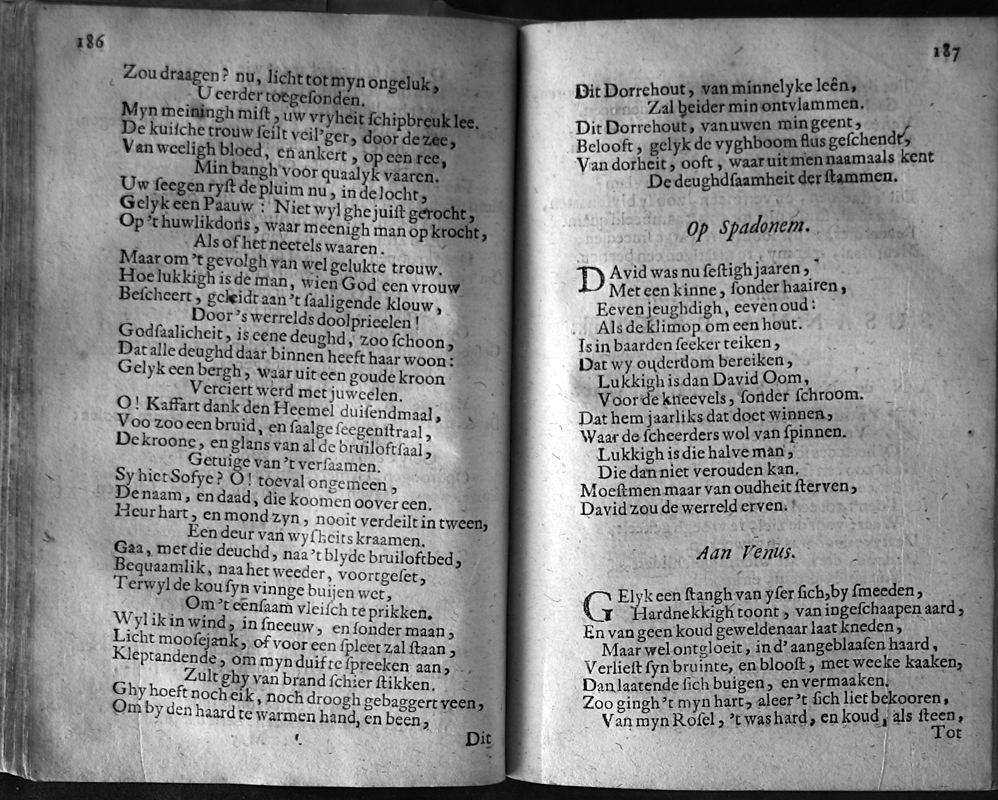 186
Zou draagen? nu, licht tot myn ongeluk,
U eerder toegeſonden.
Myn meiningh miſt, uw vryheit ſchipbreuk lee.
De kuiſche trouw ſeilt veil'ger, door de zee,
Van weeligh bloed, en ankert, op een ree,
Min bangh voor quaalyk vaaren.
Uw ſeegen ryſt de pluim nu, in de locht,
Gelyk een Paauw: Niet wyl ghe juiſt gerocht,
Op 't huwlikdons, waar meenigh man op krocht,
Als of het neetels waaren.
Maar om 't gevolgh van wel gelukte trouw.
Hoe lukkigh is de man, wien God een vrouw
Beſcheert, geleidt aan 't ſaaligende klouw,
Door 's werrelds doolprieelen!
Godſaalicheit, is eene deughd, zoo ſchoon,
Dat alle deughd daar binnen heeft haar woon:
Gelyk een bergh, waar uit een goude kroon
Verciert werd met juweelen.
O! Kaffart dank den Heemel duiſendmaal,
Voo zoo een bruid, en ſaalge ſeegenſtraal,
De kroone, en glans van al de bruiloftſaal,
Getuige van 't verſaamen.
Sy hiet Sofye? O! toeval ongemeen,
De naam, en daad, die koomen oover een.
Heur hart, en mond zyn, nooit verdeilt in tween,
Een deur van wyſheits kraamen.
Gaa, met die deuchd, naa 't blyde bruiloftbed,
Bequaamlik, naa het weeder, voortgeſet,
Terwyl de kou ſyn vinnge buijen wet,
Om 't eenſaam vleiſch te prikken.
Wyl ik in wind, in ſneeuw, en ſonder maan,
Licht mooſejank, of voor een ſpleet zal ſtaan,
Kleptandende, om myn duif te ſpreeken aan,
Zult ghy van brand ſchier ſtikken.
Ghy hoeft noch eik, noch droogh gebaggert veen,
Om by den haard te warmen hand, en been,
Dit
187
Dit Dorrehout, van minnelyke leên,
Zal beider min ontvlammen.
Dit Dorrehout, van uwen min geent,
Belooft, gelyk de vyghboom flus geſchendt,
Van dorheit, ooft, waar uit men naamaals kent
De deughdſaamheit der ſtammen.
Op Spadonem.
DAvid was nu ſeſtigh jaaren,
Met een kinne, ſonder haairen,
Eeven jeughdigh, eeven oud:
Als de klimop om een hout.
Is in baarden ſeeker teiken,
Dat wy ouderdom bereiken,
Lukkigh is dan David Oom,
Voor de kneevels, ſonder ſchroom.
Dat hem jaarliks dat doet winnen,
Waar de ſcheerders wol van ſpinnen.
Lukkigh is die halve man,
Die dan niet verouden kan.
Moeſtmen maar van oudheit ſterven,
David zou de werreld erven.
Aan Venus.
GElyk een ſtangh van yſer ſich, by ſmeeden,
Hardnekkigh toont, van ingeſchaapen aard,
En van geen koud geweldenaar laat kneden,
Maar wel ontgloeit, in d' aangeblaaſen haard,
Verlieſt ſyn bruinte, en blooſt, met weeke kaaken,
Dan laatende ſich buigen, en vermaaken.
Zoo gingh 't myn hart, aleer 't ſich liet bekooren,
Van myn Roſel, 't was hard, en koud, als ſteen,
Tot